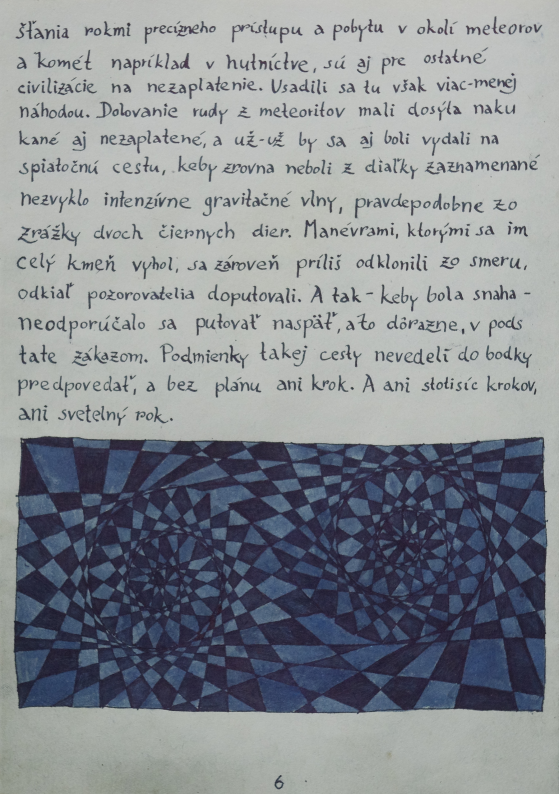 šťania rokmi precízneho prístupu a pobytu v okolí meteorov
a komét napríklad v hutníctve, sú aj pre ostatné
civilizácie na nezaplatenie. Usadili sa tu však viac-menej
náhodou. Dolovanie rudy z meteoritov mali dosýta naku
kané aj nezaplatené, a už-už by sa aj boli vydali na
spiatočnú cestu, keby zrovna neboli z diaľky zaznamenané
nezvyklo intenzívne gravitačné vlny, pravdepodobne zo
zrážky dvoch čiernych dier. Manévrami, ktorými sa im
celý kmeň vyhol, sa zároveň príliš odklonili zo smeru,
odkiaľ pozorovatelia doputovali. A tak - keby bola snaha -
neodporúčalo sa putovať naspäť, a to dôrazne, v pods
tate zákazom. Podmienky takej cesty nevedeli do bodky
predpovedať, a bez plánu ani krok. A ani stotisíc krokov,
ani svetelný rok.
6